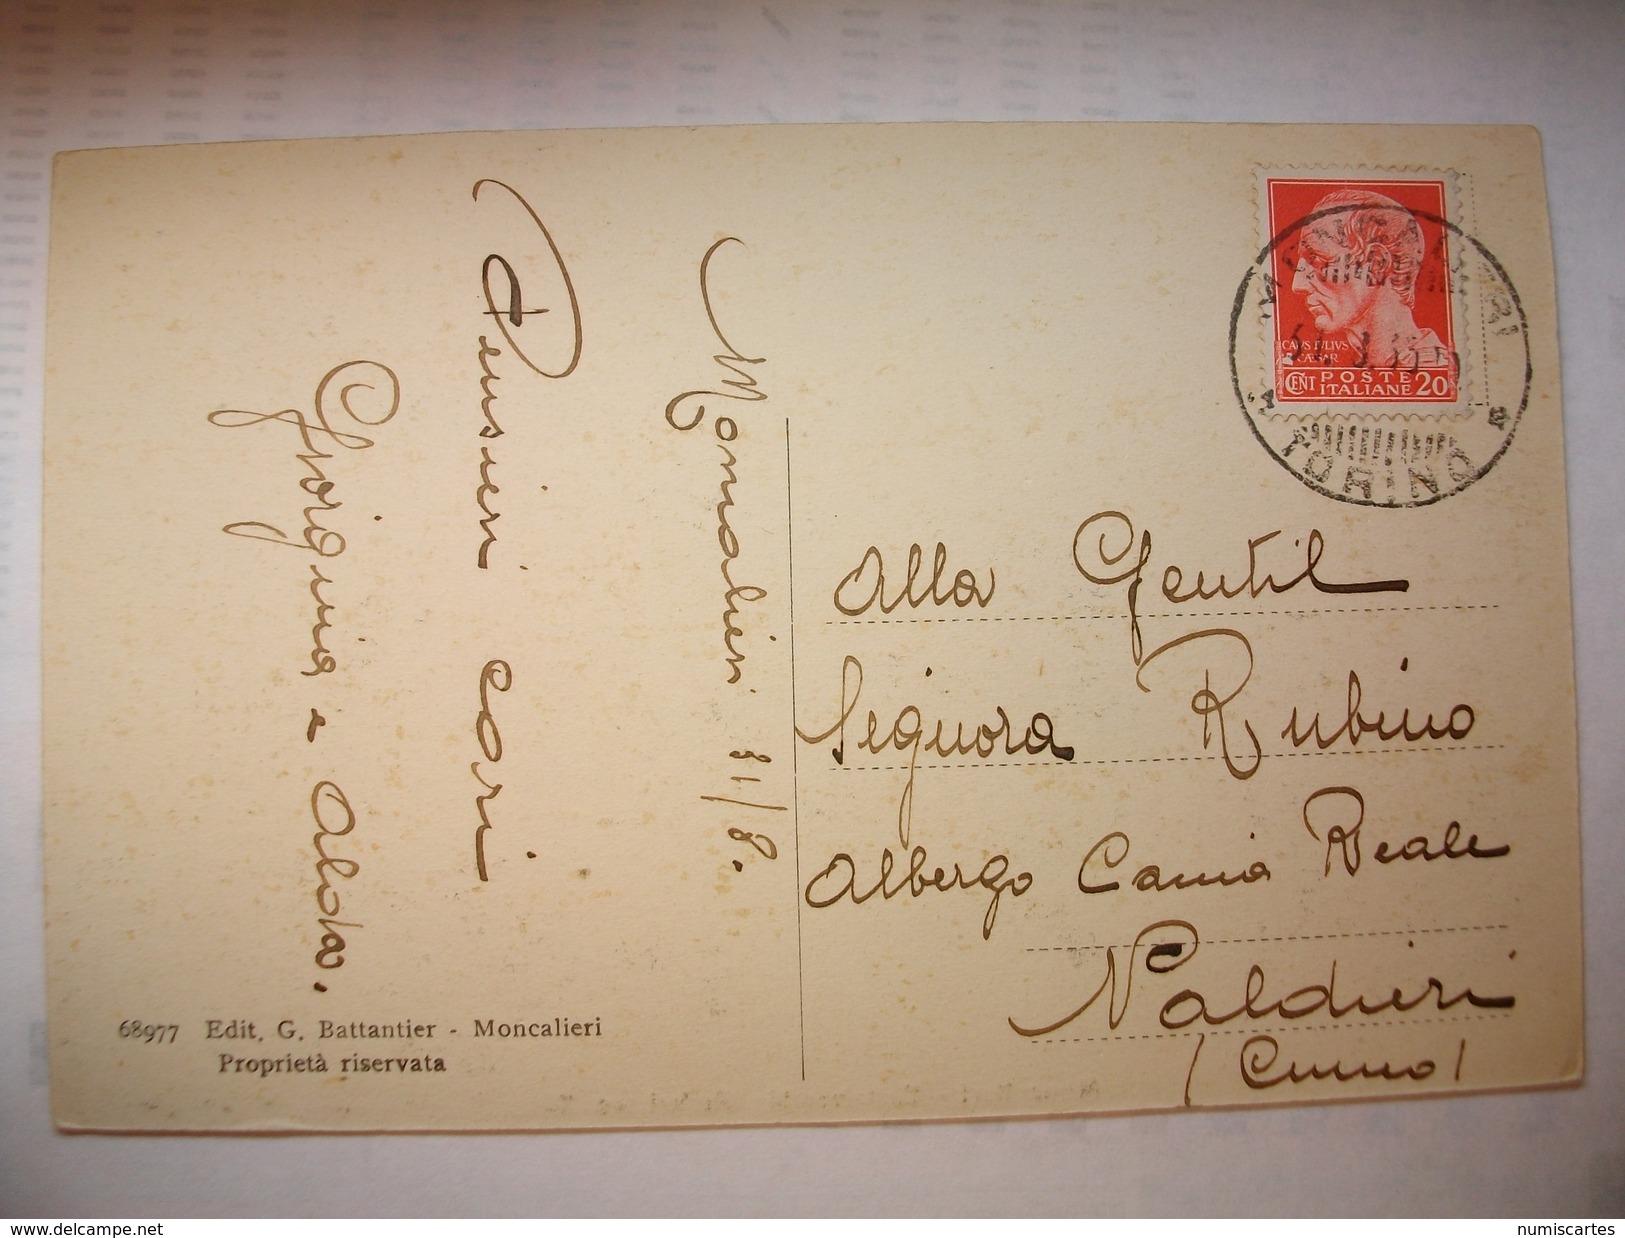 Moncalieri 31/8.
Pensieri cari
Giorgina e Aldo.
68977 Edit. G. Battantier - Moncalieri
Proprietà riservata
CAVS IVLIVS
CÆSAR
CENT POSTE ITALIANE 20
MONCALIERI
TORINO
Alla Gentil
Signora Rubino
Albergo Corona Reale
Valdieri
(Cuneo)
delcampe.net
numiscartes